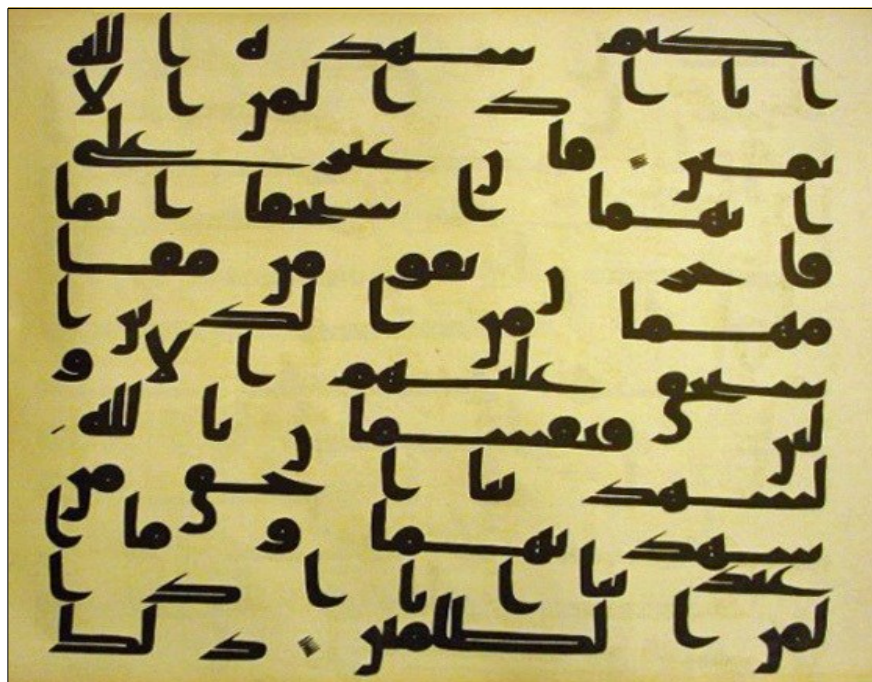 نكتم شهدة الله
انا اذا لمن الا
ثمين فان عثر على
انهما استحقا اثما
فاخرن يقومن مقا
مهما من الذين ا
ستحق عليهم الاو
لين فيقسمان بالله
لشهدتنا احق من
شهدتهما وما ا
عتدينا انا اذا
لمن الظلمين ذلك